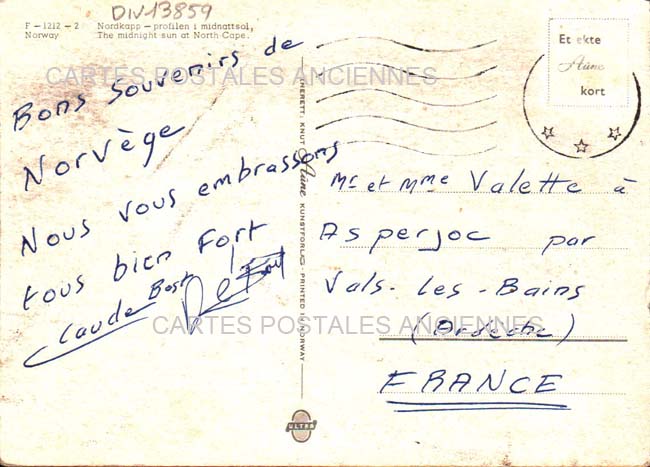 DIV13859
F - 1212 - 2 Nordkapp — profilen i midnattsol,
Norway The midnight sun at North-Cape.
Et ekte
Aune
kort
CARTES POSTALES ANCIENNES
Bons souvenirs de
Norvège
Nous vous embrassons
tous bien fort
Claude
ENERETT: KNUT Aune KUNSTFORLAG - PRINTED IN NORWAY
Mr et Mme Valette à
Asperjoc par
Vals-les-Bains
(Ardèche)
FRANCE
CARTES POSTALES ANCIENNES
ULTRA